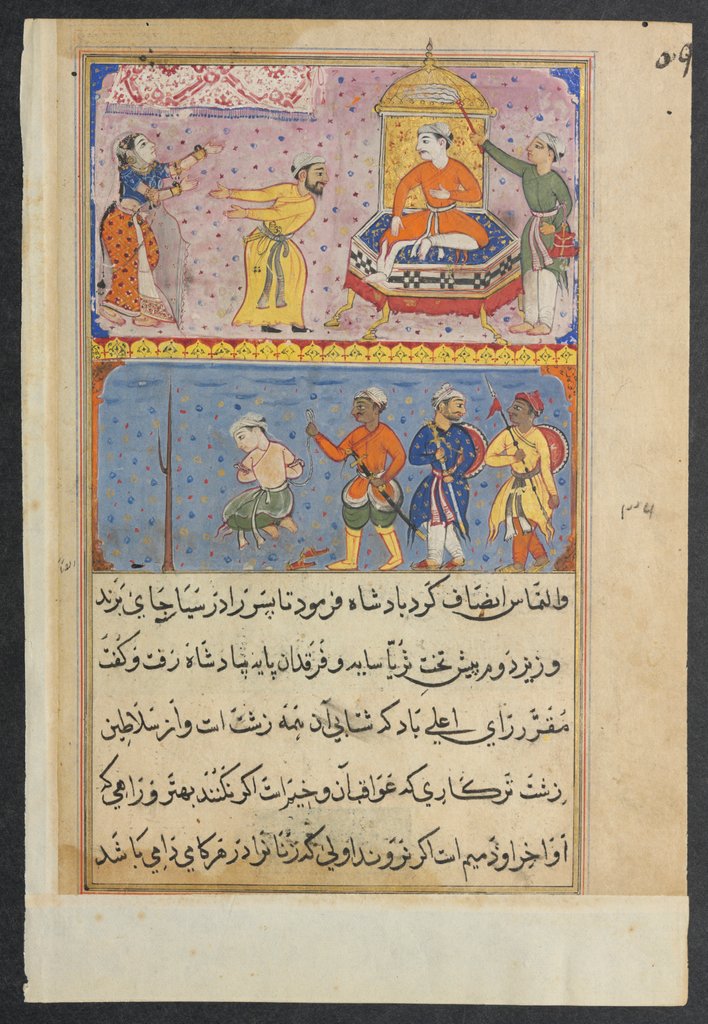 والتماس انصاف کرد بادشاه فرمود تا پسر را در سیاستجای برند
وزیر دوم پیش تخت ثریا سایه و فرقدان پایه بادشاه رفت و گفت
مقرر رای اعلی باد که شتابی از همه زشت است و از سلاطین
زشت تر کاری که عواقب آن وخیم است اگر نکنند بهتر و راهی که
اواخر او ذمیم است اگر نروند اولی که زنان را در هر کامی دامی باشد